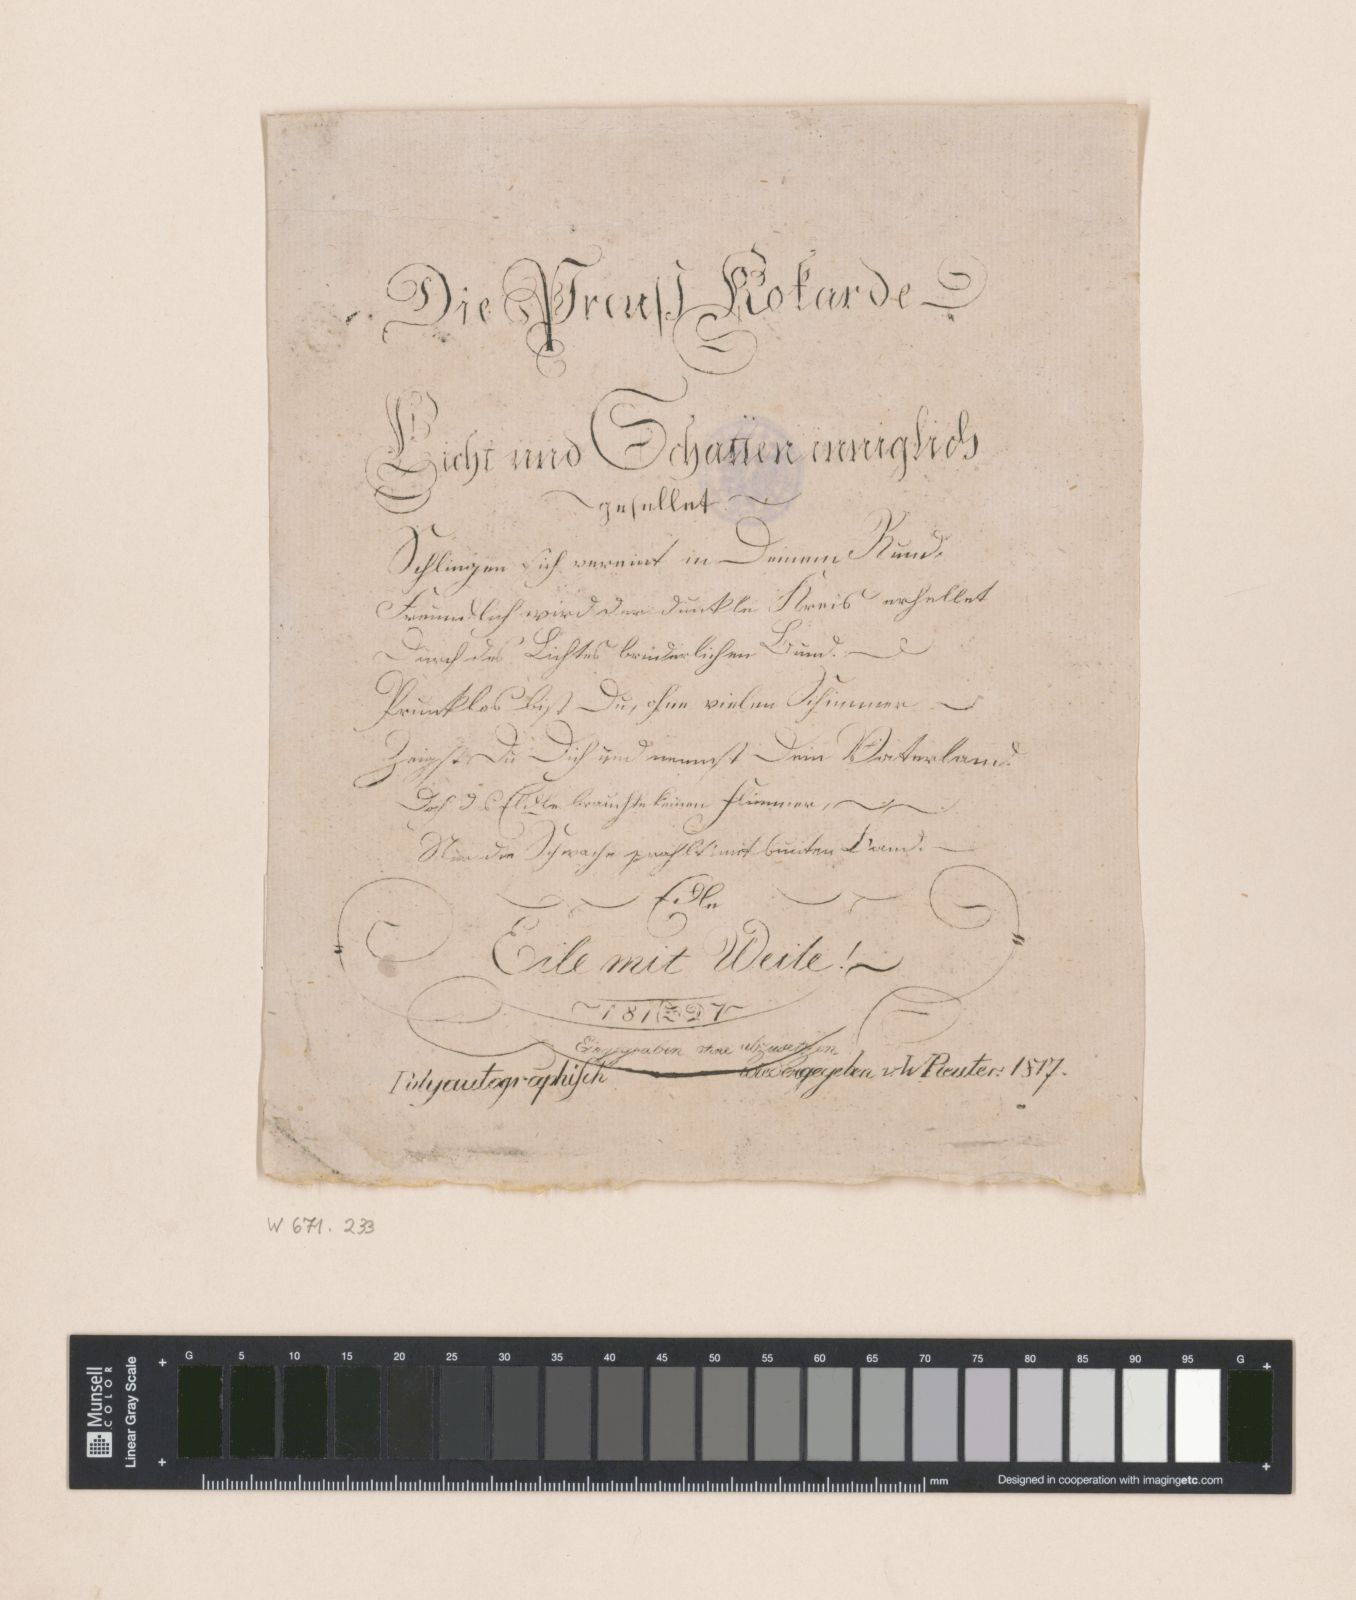 Die Preuß Kokarde
Licht und Schatten inniglich
gesellet
Schlingen sich vereint in Deinem Rund.
Freundlich wird der dunkle Kreis erhellet
Durch des Lichtes brüderlichen Bund.
Prunklos bist Du, ohne vielen Schimmer
Zeigst Du Dich und nennst Dein Vaterland.
Doch das Edle braucht keinen Flimmer,
Nur die Schwache prahlt mit bunten Band.
Edle
Eile mit Weile!
Eingegraben ohne abzusetzen
Polyautographisch wiedergegeben v. W Reuter: 1817.
W 671. 233
Munsell
COLOR
Linear Gray Scale
G 5 10 15 20 25 30 35 40 45 50 55 60 65 70 75 80 85 90 95 G
mm
Designed in cooperation with imagingetc.com